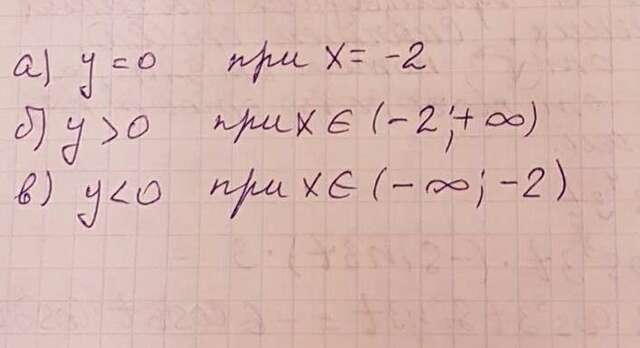 а) y = 0 при x = -2
б) y > 0 при x ∈ (-2; +∞)
в) y < 0 при x ∈ (-∞; -2)